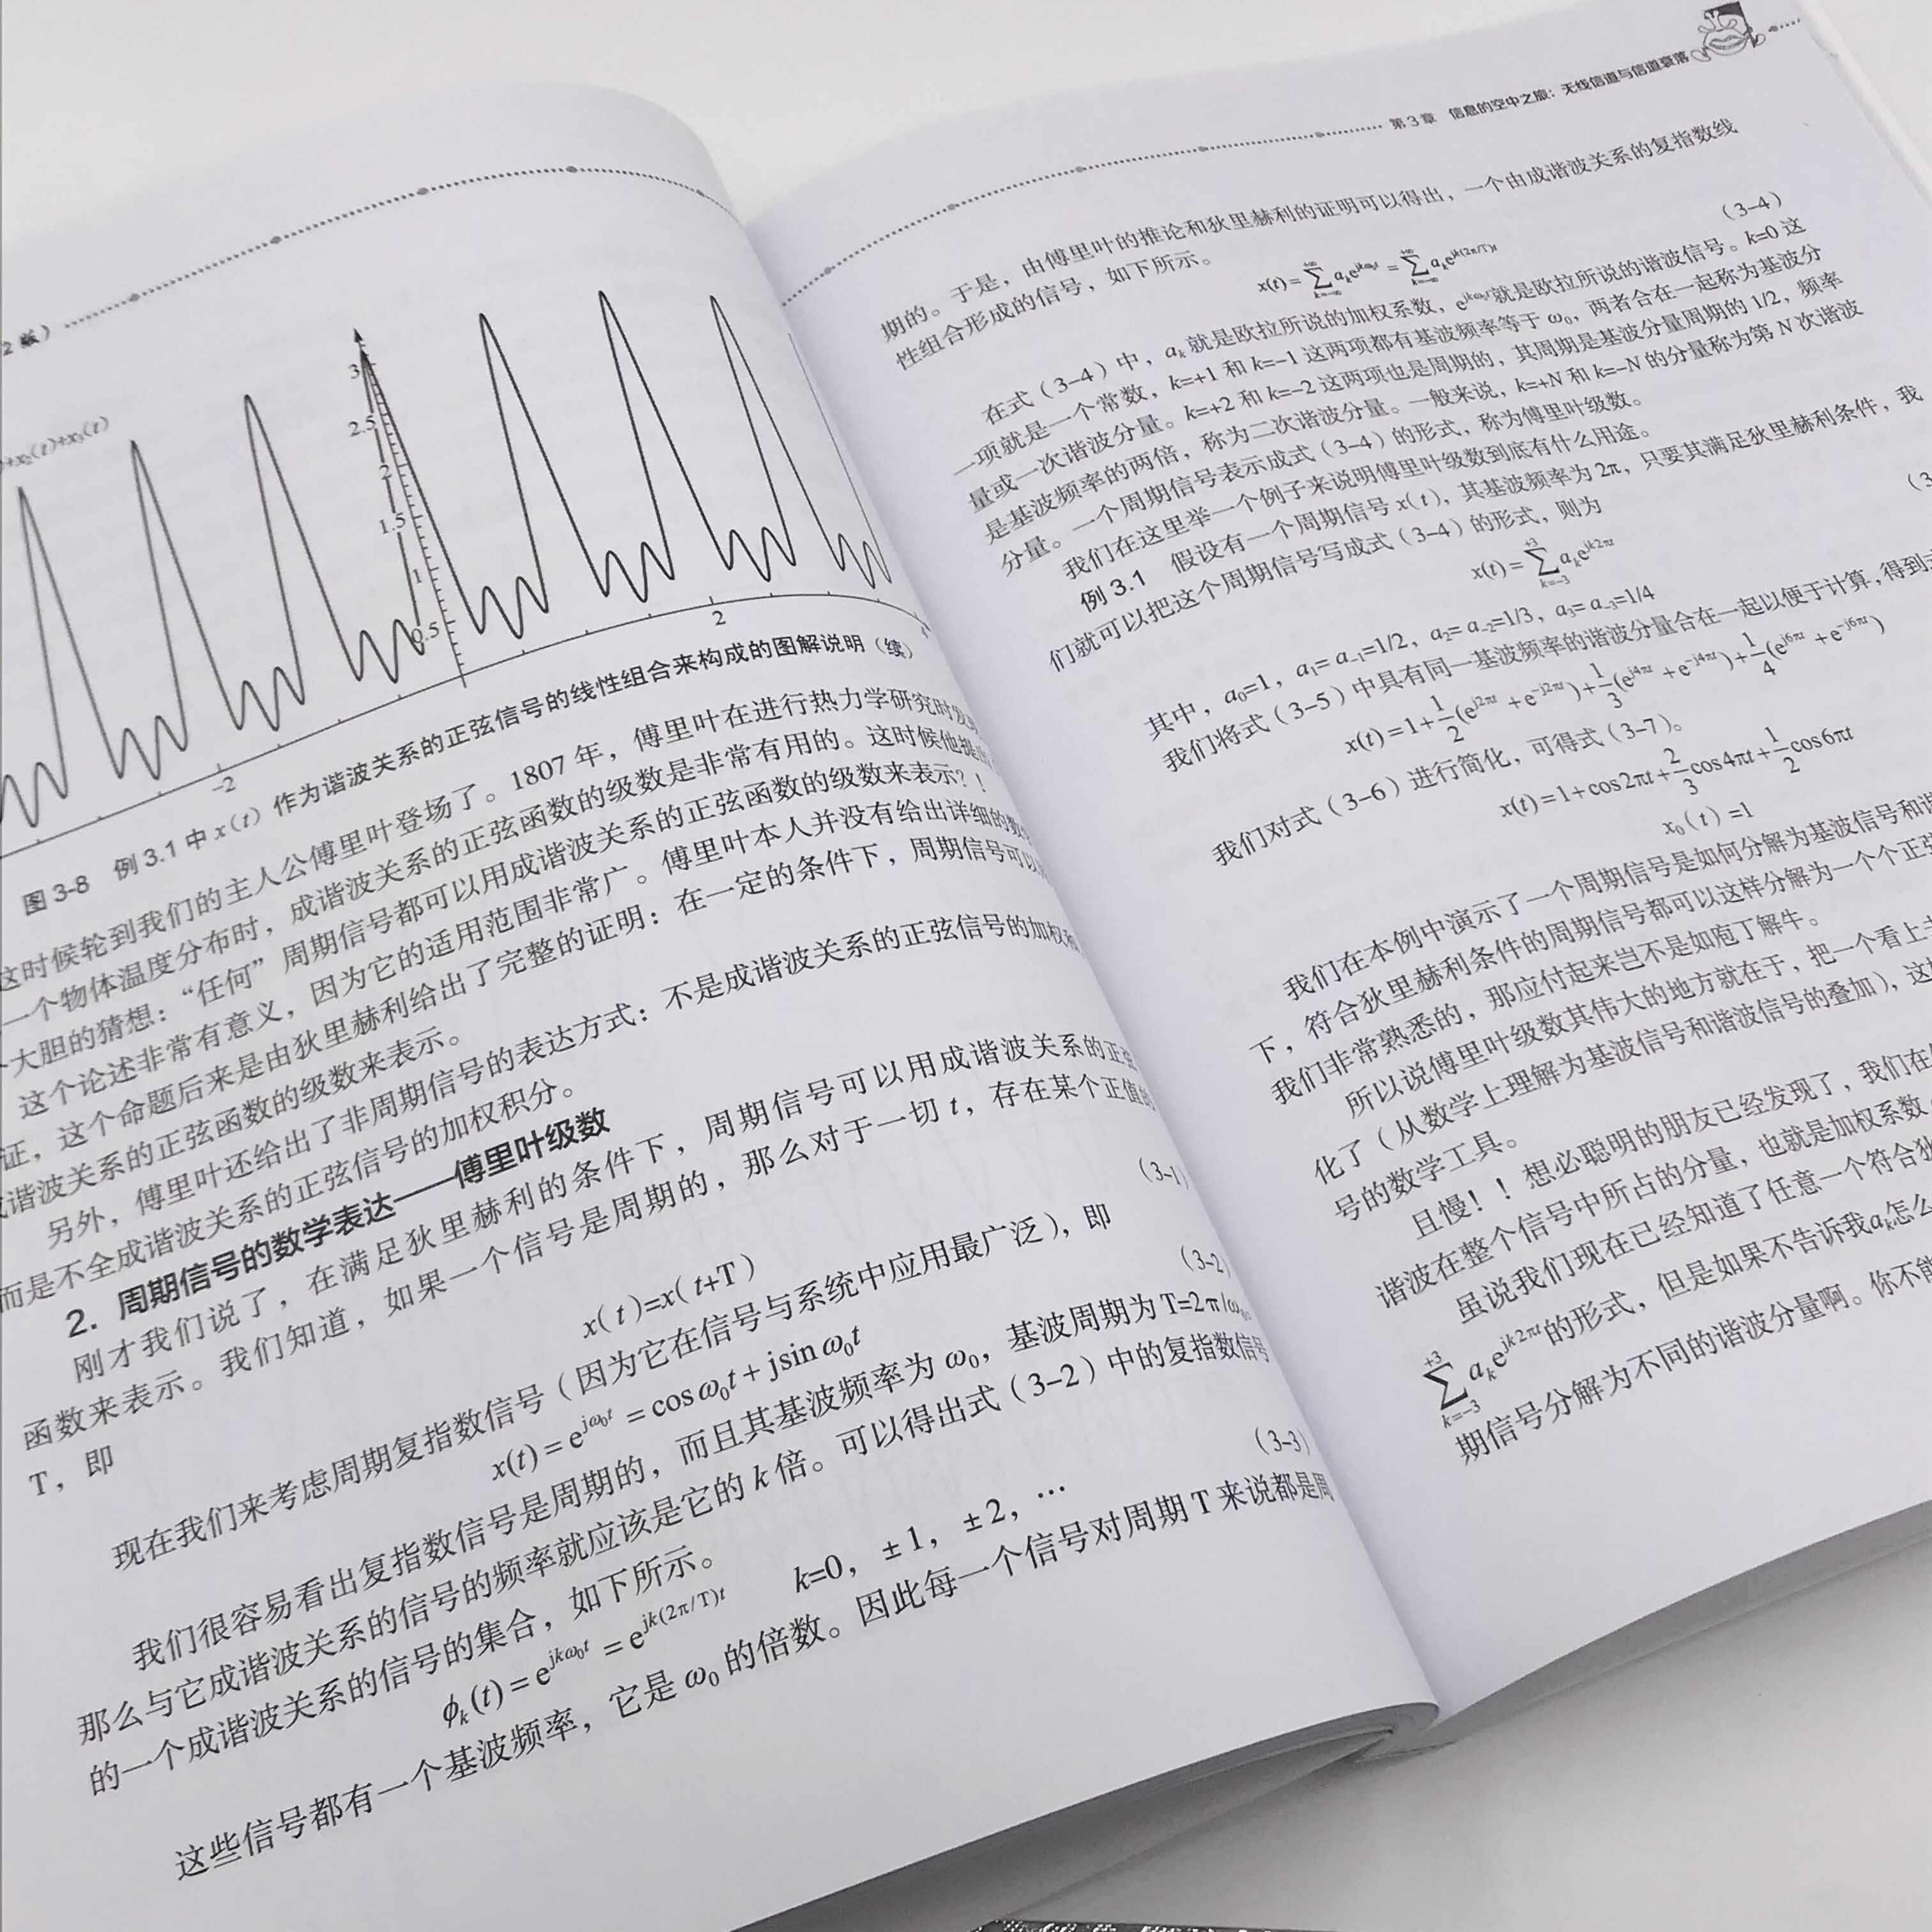 2版）
+x₂(t)+x₃(t)
3
2.5
2
1.5
1
0.5
-2
2
4
图3-8 例3.1中x(t)作为谐波关系的正弦信号的线性组合来构成的图解说明（续）
这时候轮到我们的主人公傅里叶登场了。1807年，傅里叶在进行热力学研究时发
一个物体温度分布时，成谐波关系的正弦函数的级数是非常有用的。这时候他提
大胆的猜想：“任何”周期信号都可以用成谐波关系的正弦函数的级数来表示？！
这个论述非常有意义，因为它的适用范围非常广。傅里叶本人并没有给出详细的数
证，这个命题后来是由狄里赫利给出了完整的证明：在一定的条件下，周期信号可以
谐波关系的正弦函数的级数来表示。
另外，傅里叶还给出了非周期信号的表达方式：不是成谐波关系的正弦信号的加权
而是不全成谐波关系的正弦信号的加权积分。
2. 周期信号的数学表达——傅里叶级数
刚才我们说了，在满足狄里赫利的条件下，周期信号可以用成谐波关系的正弦
函数来表示。我们知道，如果一个信号是周期的，那么对于一切t，存在某个正值的
T，即
x(t)=x(t+T) （3-1）
现在我们来考虑周期复指数信号（因为它在信号与系统中应用最广泛），即
x(t)=e^{jω₀t}=cosω₀t+jsinω₀t （3-2）
我们很容易看出复指数信号是周期的，而且其基波频率为ω₀，基波周期为T=2π/ω₀，
那么与它成谐波关系的信号的频率就应该是它的k倍。可以得出式（3-2）中的复指数信号
的一个成谐波关系的信号的集合，如下所示。
ϕₖ(t)=e^{jkω₀t}=e^{jk(2π/T)t} k=0，±1，±2，… （3-3）
这些信号都有一个基波频率，它是ω₀的倍数。因此每一个信号对周期T来说都是周
第3章 信息的空中之旅：无线信道与信道衰落
期的。于是，由傅里叶的推论和狄里赫利的证明可以得出，一个由成谐波关系的复指数线
性组合形成的信号，如下所示。
x(t)=∑_{k=-∞}^{+∞}aₖe^{jkω₀t}=∑_{k=-∞}^{+∞}aₖe^{jk(2π/T)t} （3-4）
在式（3-4）中，aₖ就是欧拉所说的加权系数，e^{jkω₀t}就是欧拉所说的谐波信号。k=0这
一项就是一个常数，k=+1和k=-1这两项都有基波频率等于ω₀，两者合在一起称为基波分
量或一次谐波分量。k=+2和k=-2这两项也是周期的，其周期是基波分量周期的1/2，频率
是基波频率的两倍，称为二次谐波分量。一般来说，k=+N和k=-N的分量称为第N次谐波
分量。一个周期信号表示成式（3-4）的形式，称为傅里叶级数。
我们在这里举一个例子来说明傅里叶级数到底有什么用途。
例3.1 假设有一个周期信号x(t)，其基波频率为2π，只要其满足狄里赫利条件，我
们就可以把这个周期信号写成式（3-4）的形式，则为
x(t)=∑_{k=-3}^{+3}aₖe^{jk2πt} （3
其中，a₀=1，a₁=a₋₁=1/2，a₂=a₋₂=1/3，a₃=a₋₃=1/4
我们将式（3-5）中具有同一基波频率的谐波分量合在一起以便于计算，得到
x(t)=1+1/2(e^{j2πt}+e^{-j2πt})+1/3(e^{j4πt}+e^{-j4πt})+1/4(e^{j6πt}+e^{-j6πt})
我们对式（3-6）进行简化，可得式（3-7）。
x(t)=1+cos2πt+2/3cos4πt+1/2cos6πt
x₀(t)=1
我们在本例中演示了一个周期信号是如何分解为基波信号和谐
下，符合狄里赫利条件的周期信号都可以这样分解为一个个正弦
我们非常熟悉的，那应付起来岂不是如庖丁解牛。
所以说傅里叶级数其伟大的地方就在于，把一个看上去
化了（从数学上理解为基波信号和谐波信号的叠加），这
号的数学工具。
且慢！！想必聪明的朋友已经发现了，我们在
谐波在整个信号中所占的分量，也就是加权系数
虽说我们现在已经知道了任意一个符合狄
∑_{k=-3}^{+3}aₖe^{jk2πt}的形式，但是如果不告诉我aₖ怎么
期信号分解为不同的谐波分量啊。你不能